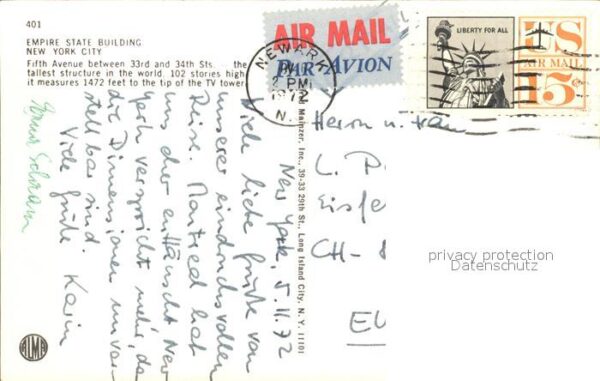 401
EMPIRE STATE BUILDING
NEW YORK CITY
Fifth Avenue between 33rd and 34th Sts the
tallest structure in the world. 102 stories high
it measures 1472 feet to the tip of the TV tower
AIR MAIL
PAR AVION
NEWARK
PM
1972
N.
LIBERTY FOR ALL
US
AIR MAIL
15¢
New York, 5.11.72
Viele liebe Grüße von
unserer eindrucksvollen
Reise. Montreal hat
uns der enttäuscht New
York verspricht mehr, da
die Dimensionen unvor
stellbar sind.
Viele Grüße Karin
Mainzer, Inc., 39-33 29th St., Long Island City, N. Y. 11101
Herrn u. Frau
L. P
Eisfe
CH-
EU
privacy protection
Datenschutz
ALMA